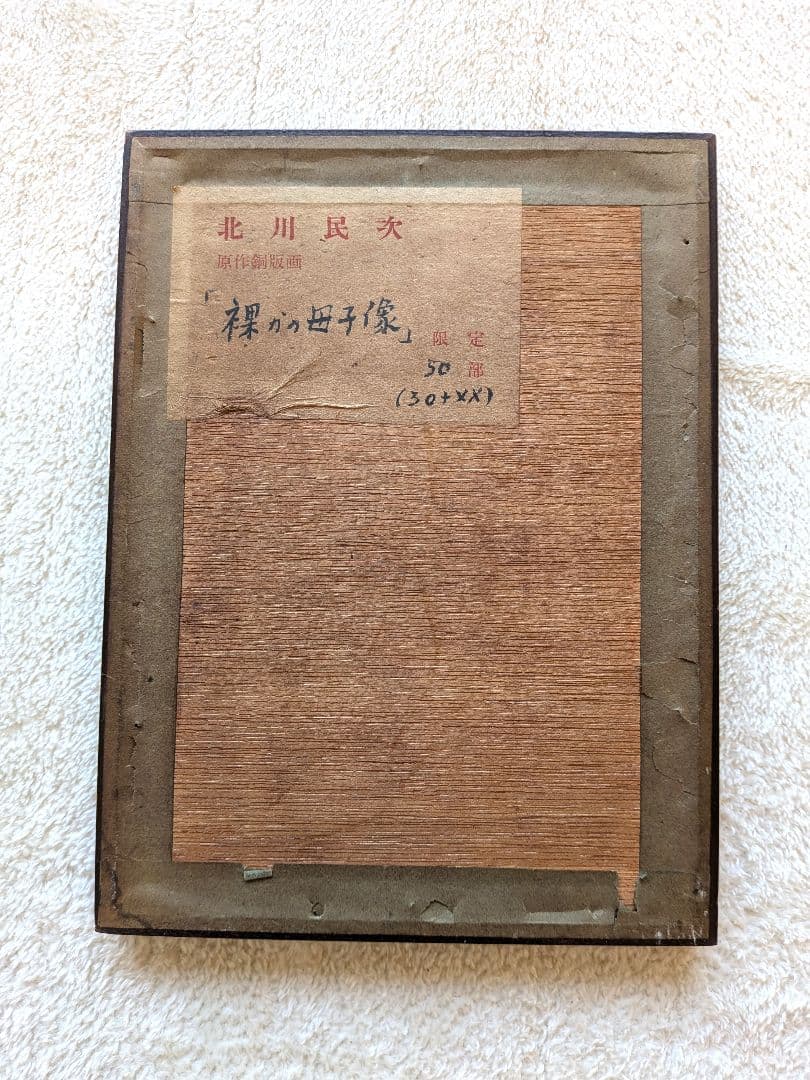 北川民次
原作銅版画
「裸かの母子像」
限定
50部
(30+XX)